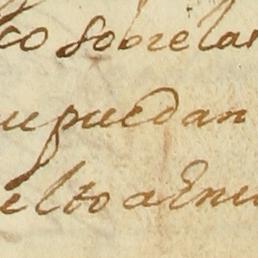 co sobre lar
ue puedan
elto a Enu